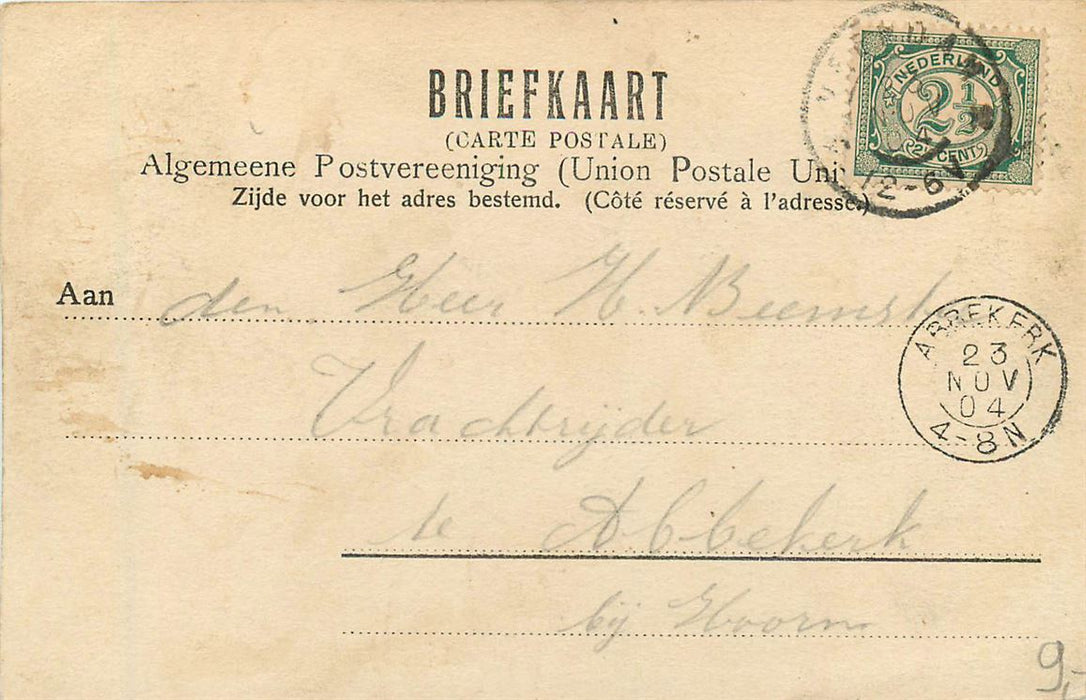 BRIEFKAART
(CARTE POSTALE)
Algemeene Postvereeniging (Union Postale Uni
Zijde voor het adres bestemd. (Côté réservé à l'adresse.)
NEDERLAND
2½
2½ CENT
12-6V
Aan den Heer H. Beemst
Vrachtrijder
te Abbekerk
bij Hoorn
ABBEKERK
23
NOV
04
4-8N
9,-